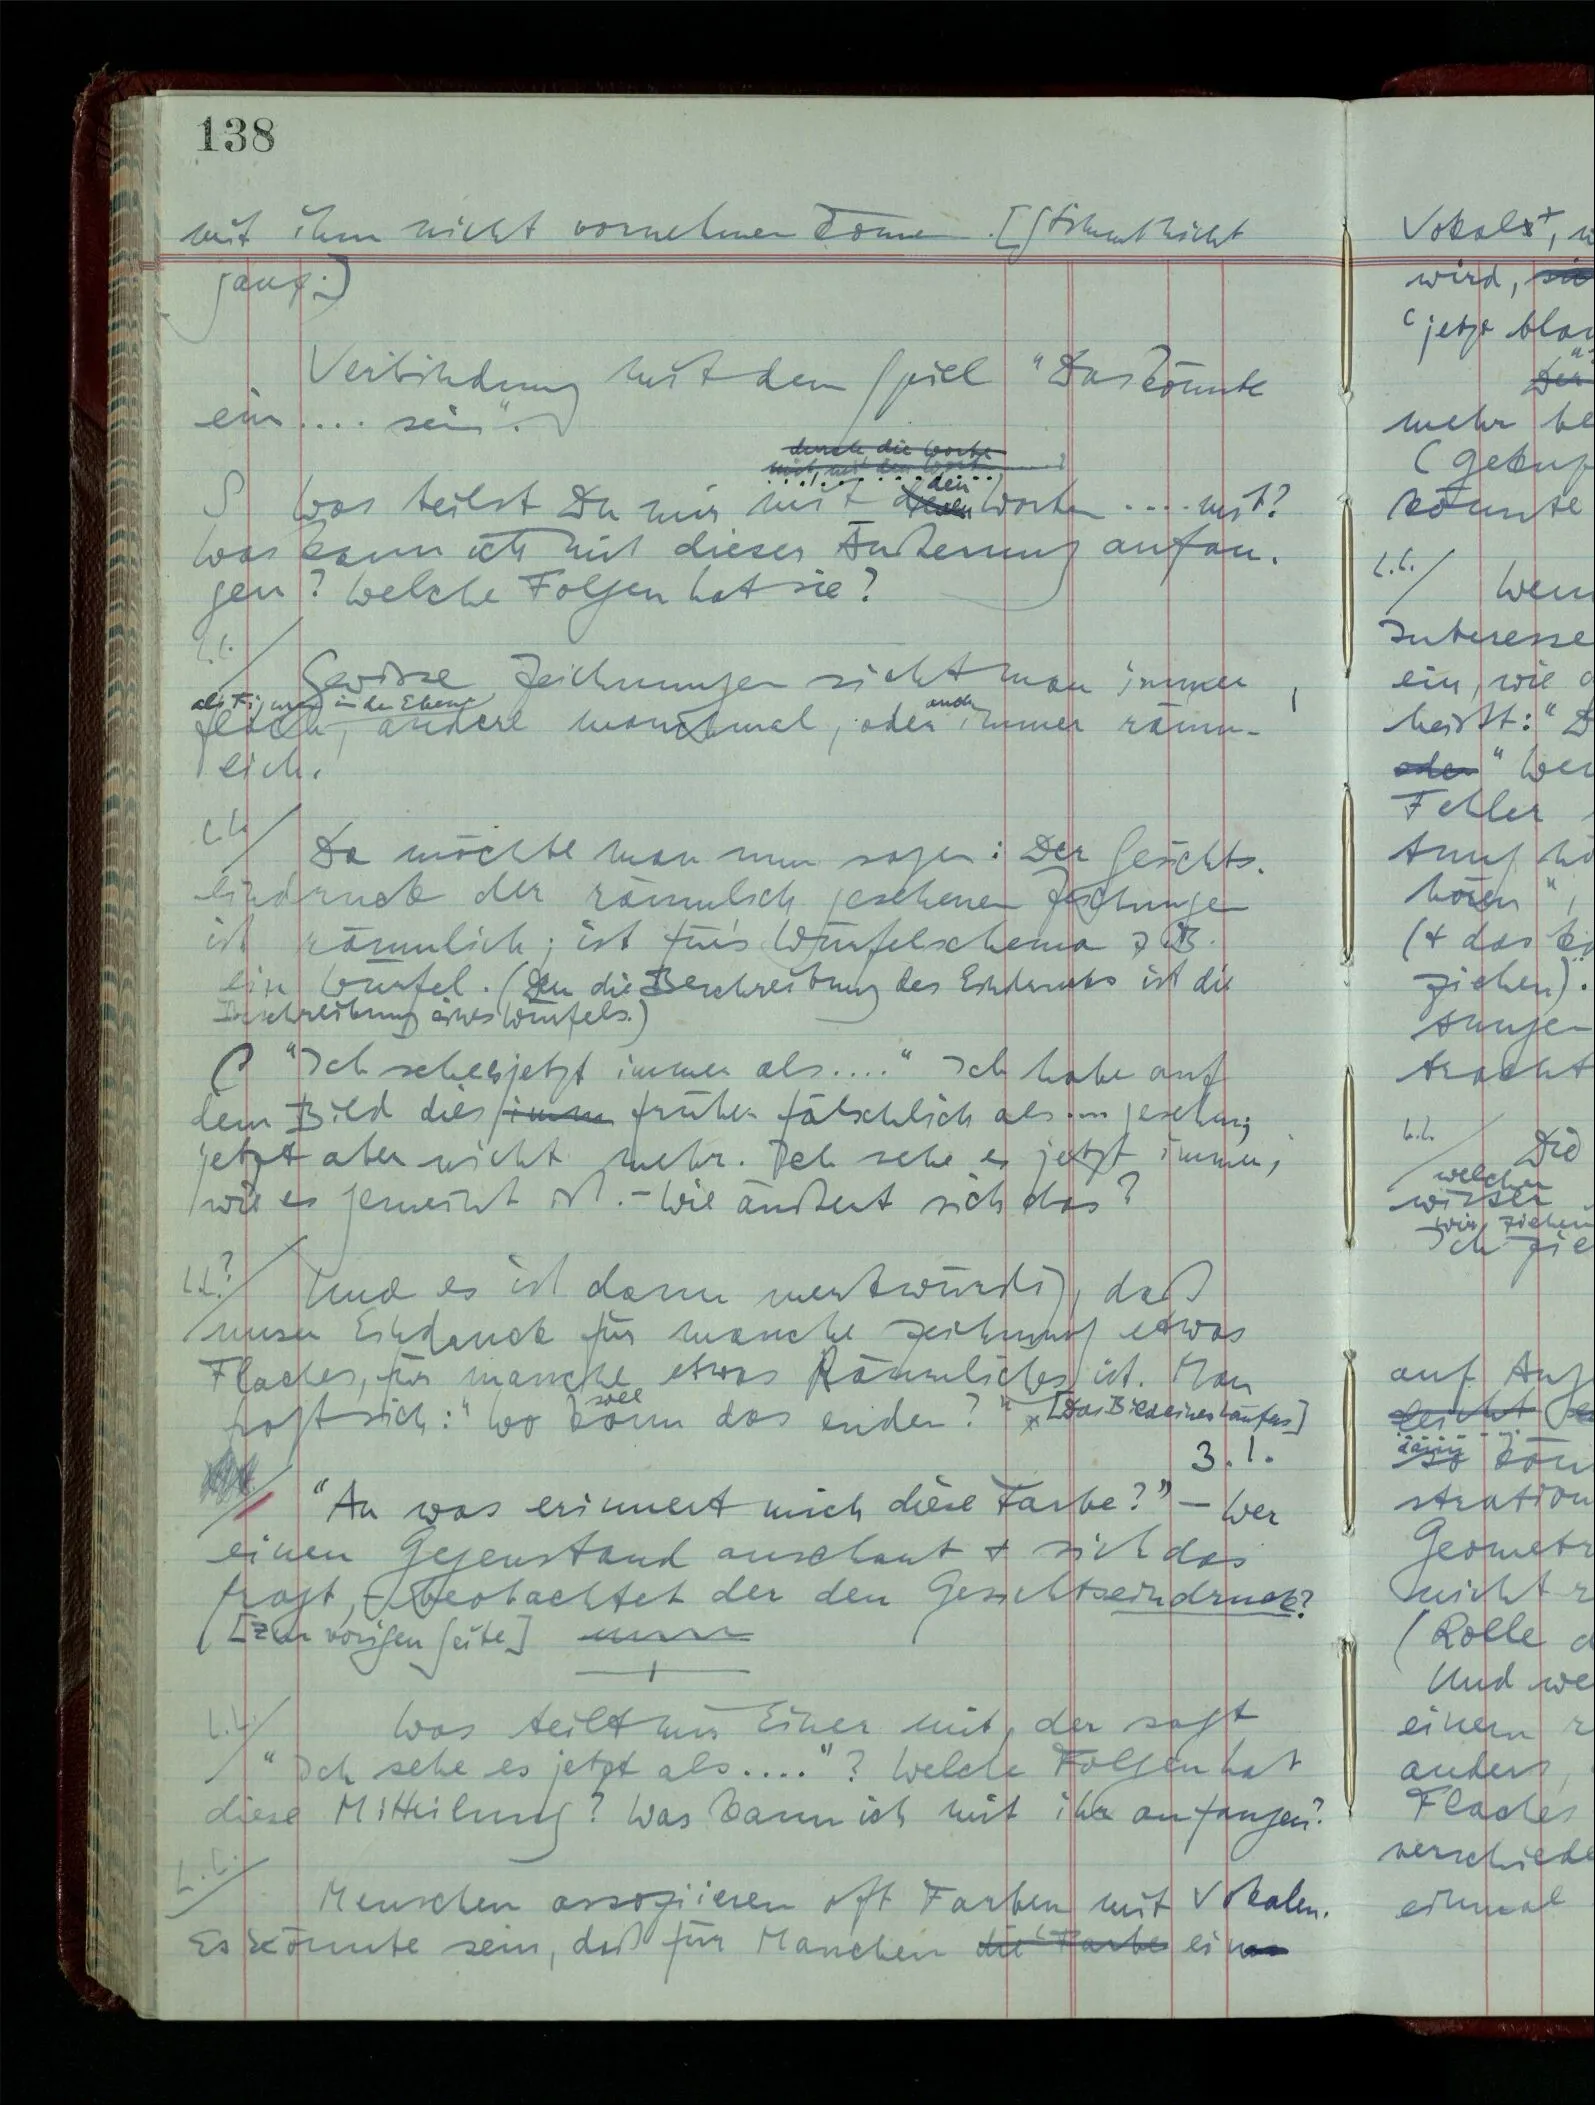 138
mit ihm nicht vornehmen könne. [Stimmt nicht
ganz.]
Verbindung mit dem Spiel "Das könnte
ein .... sein".
durch die Worte
mich, mit den Worten
den
S Was teilst Du mir mit Worten .... mit?
Was kann ich mit dieser Äußerung anfan-
gen? Welche Folgen hat sie?
Gewisse Zeichnungen sieht man immer
als Figuren in der Ebene auch
flach, andere manchmal, oder immer räum-
lich.
Da möchte man nun sagen: Der Gesichts-
eindruck der räumlich gesehenen Zeichnungen
ist räumlich; ist für's Würfelschema z.B.
ein Würfel. (Den die Beschreibung des Eindrucks ist die
Beschreibung eines Würfels.)
"Ich sehe es jetzt immer als ...." Ich habe auf
dem Bild dies imm früher fälschlich als ... gesehen;
jetzt aber nicht mehr. Ich sehe es jetzt immer,
wie es gemeint ist. – Wie äußert sich das?
? Und es ist dann merkwürdig, daß
unser Eindruck für manche Zeichnung etwas
Flaches, für manche etwas Räumliches ist. Man
soll
fragt sich: "Wo kann das enden?" [Das Bild eines Läufers]
3.1.
"An was erinnert mich diese Farbe?" – Wer
einen Gegenstand anschaut + sich das
fragt, – beobachtet der den Gesichtseindruck?
[Zur vorigen Seite]
Was teilt mir Einer mit, der sagt
"Ich sehe es jetzt als...."? Welche Folgen hat
diese Mitteilung? Was kann ich mit ihr anfangen?
Menschen assoziieren oft Farben mit Vokalen.
Es könnte sein, daß für Manchen die Farbe ein
Vokal,
wird, sie
jetzt
Der
mehr
könnte
Wenn
Interesse
ein, wie
heißt: "D
oder "
Fehler
hören",
(+ das
ziehen).
Die
welcher
wir ziehen
Ich zie
auf
leicht
stration
Geometr
nicht
(Rolle d
Und we
einem
anders,
Flaches
verschiede
einmal